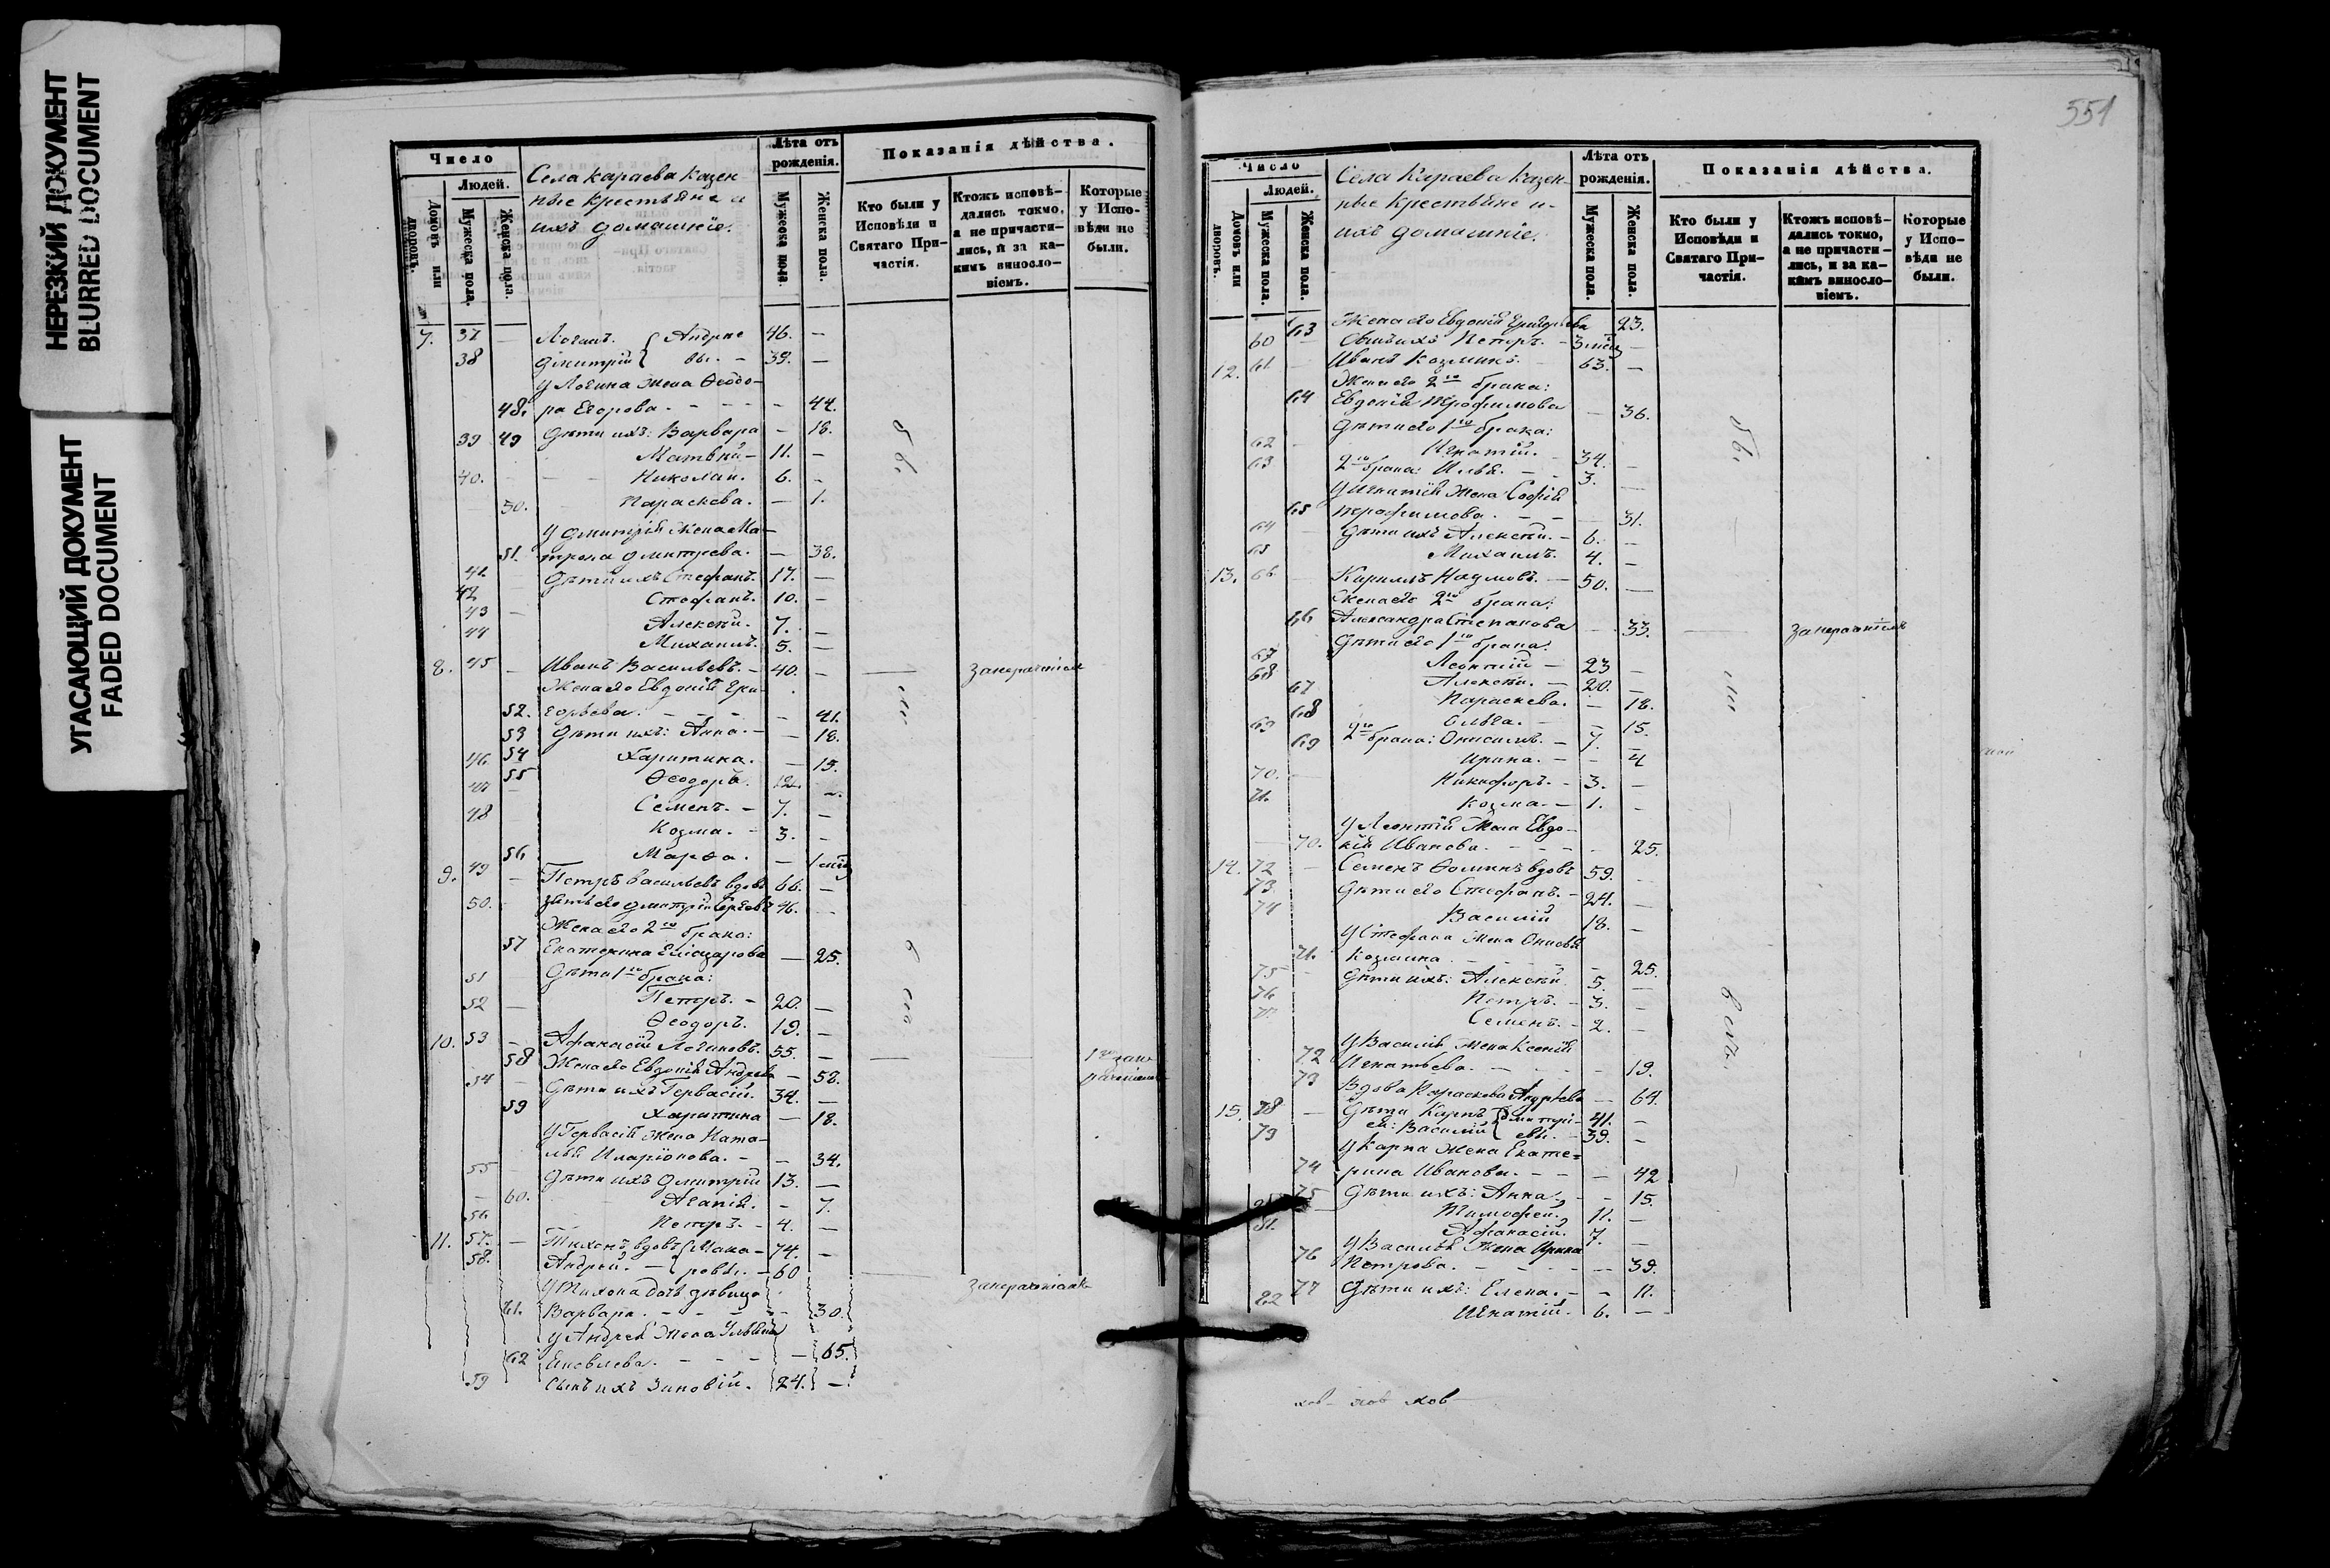 НЕРЕЗКИЙ ДОКУМЕНТ
BLURRED DOCUMENT
УГАСАЮЩИЙ ДОКУМЕНТ
FADED DOCUMENT
Число
Людей.
Домовъ или дворовъ.
Мужеска пола.
Женска пола.
Села Караева Казен
ные Крестьяне и
ихъ домашніе.
Лѣта отъ рожденія.
Мужеска пола.
Женска пола.
Показанія дѣйства.
Кто были у Исповѣди и Святаго При-частія.
Ктожъ исповѣ-дались токмо, а не причасти-лись, и за ка-кимъ виносло-віемъ.
Которые у Испо-вѣди не были.
7. 37 — Логинъ. { Андре 46. —
38 Димитрій { вы. — 39. —
у Логина жена Ѳеодо-
48. ра Егорова. — — — — 44.
39 49 Дѣти ихъ: Варвара — 18.
Матвѣй — 11. —
40. — — Николай. 6. —
50. Параскева. — 1.
у Димитрія жена Ма-
51. трона Дмитрева. — 38.
41 Дѣти ихъ Стефанъ. 17. —
42 Стефанъ. 10. —
43 — Алексѣй. 7. —
44 Михаилъ. 5. —
8. 45 — Иванъ Васильевъ. — 40. —
Жена его Евдокія Гри-
52. горьева. — — — — 41.
53 Дѣти ихъ: Анна. — — 18.
46 54 Харитина. — 15.
55 Ѳеодоръ. 12.
47 — Семенъ. — 7. —
48 Козма. — 3. —
56 Марѳа. — 1 мѣс
9. 49 — Петръ Васильевъ вдовъ 66. —
50. зять его Дмитрій Сергѣевъ 46. —
Жена его 2го брака:
57 Екатерина Елиазарова — 25.
51 Дѣти 1го брака:
52 — Петръ. — 20. —
Ѳеодоръ. 19. —
10. 53 — Афанасій Логиновъ. 55. —
58 Жена его Евдокія Андрева — 58.
54 — Дѣти ихъ Гервасій. 34. —
59 Харитина — 18.
у Гервасія жена Ната-
лья Иларіонова. — — 34.
55 Дѣти ихъ Дмитрій 13. —
— 60. Агапія. — 7.
56 Петръ. — 4. —
11. 57. — Тихонъ вдовъ { Мака- 74. —
58. Андрей. — { ровы. — 60
у Тихона дочь дѣвица
61. Варвара. — — — — 30.
у Андрея жена Ульяна
62 Яковлева. — — — — 65.
59 Сынъ ихъ Зиновій. 24. —
551
Число
Людей.
Домовъ или дворовъ.
Мужеска пола.
Женска пола.
Села Караева Казен-
ные Крестьяне и
ихъ домашніе.
Лѣта отъ рожденія.
Мужеска пола.
Женска пола.
Показанія дѣйства.
Кто были у Исповѣди и Святаго При-частія.
Ктожъ исповѣ-дались токмо, а не причасти-лись, и за ка-кимъ виносло-віемъ.
Которые у Испо-вѣди не были.
63 Жена его Евдокія Григорьева 23.
60 — Сынъ ихъ Петръ. — 3 мѣс —
12. 61 — Иванъ Козминъ. 63. —
Жена его 2го брака:
64 Евдокія Трофимова — 36.
Дѣти его 1го брака:
62 — Игнатій. — 34. —
63 2го брака: Илья. — — 3. —
у Игнатія жена Софія
65 Трофимова. — — — 31.
64 — Дѣти ихъ Алексѣй. — 6. —
65 Михаилъ. 4. —
13. 66 — Кирилъ Наумовъ. — 50. —
Жена его 2го брака:
66 Александра Степанова — 33.
Дѣти его 1го брака:
67 Леонтій — 23 —
68 Алексѣй. — 20. —
67 Параскева. — 18.
68 Ольга. — — 15.
69 2го брака: Онисимъ. — 7. —
69 Ирина. — — 4
70. — Никифоръ. — 3. —
71. Козма. — 1. —
у Леонтія жена Евдо-
70. кія Иванова. — — — — 25.
14. 72 — Семенъ Ѳоминъ вдовъ 59. —
73 Дѣти его Стефанъ. — 24. —
74 Василій 18. —
у Стефана жена
71. Козмина — — — 25.
75 — Дѣти ихъ: Алексѣй 5. —
76 Петръ. — 3. —
77 Семенъ. — 2. —
у Василья жена Ксенія
72 Игнатьева. — — — — 19.
73 Вдова Параскева Андрѣева — 64.
15. 78 — Дѣти Карпъ { Дмитрі- 41. —
ей: Василій { евы. — 39. —
79
у Карпа жена Екате-
74 рина Иванова. — — — 42
75 Дѣти ихъ: Анна. — — 15.
80 Тимофей. 11. —
81. Афанасій. 7. —
у Василья жена Ирина
76 Петрова. — — — — — 39.
77 Дѣти ихъ: Елена. — — 11.
82 Игнатій. 6. —